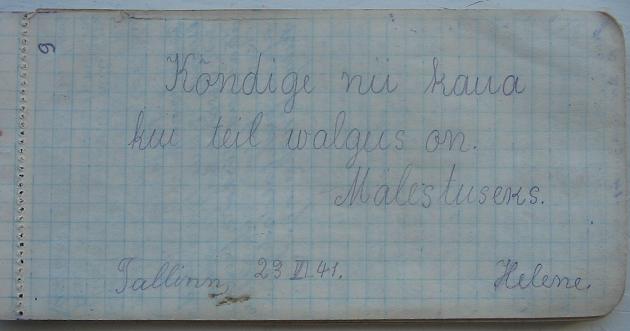 9
Kõndige nii kaua
kui teil walgus on.
Mälestuseks.
Tallinn, 23 VI 41.
Helene.